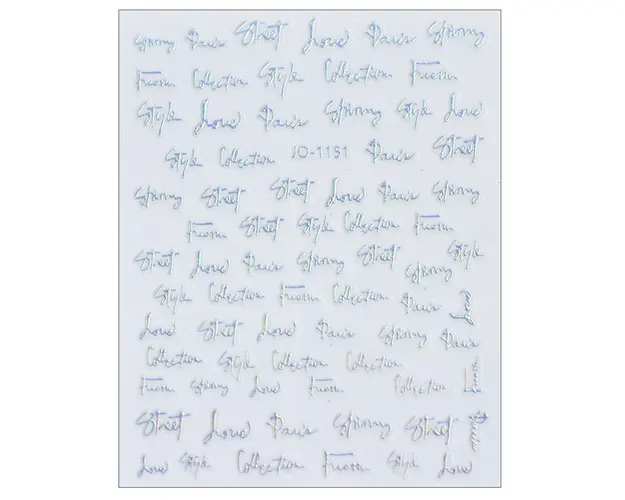 Spirnny Pauis Street Loue Pauis Spirnny
Fruosm Collection Style Collection Fruosm
Style Loue Pauis Spirnny Style Loue
Style Collection JO-1151 Pauis Street
Spirnny Street Street Loue Pauis Spirnny
Fruosm Street Style Collection Fruosm
Street Loue Pauis Spirnny Street Spirnny Style
Style Collection Fruosm Collection Pauis Loue
Loue Street Loue Pauis Spirnny Pauis
Collection Style Collection Collection
Fruosm Spirnny Loue Fruosm Collection Fruosm
Street Loue Pauis Spirnny Street Pauis
Loue Style Collection Fruosm Style Loue